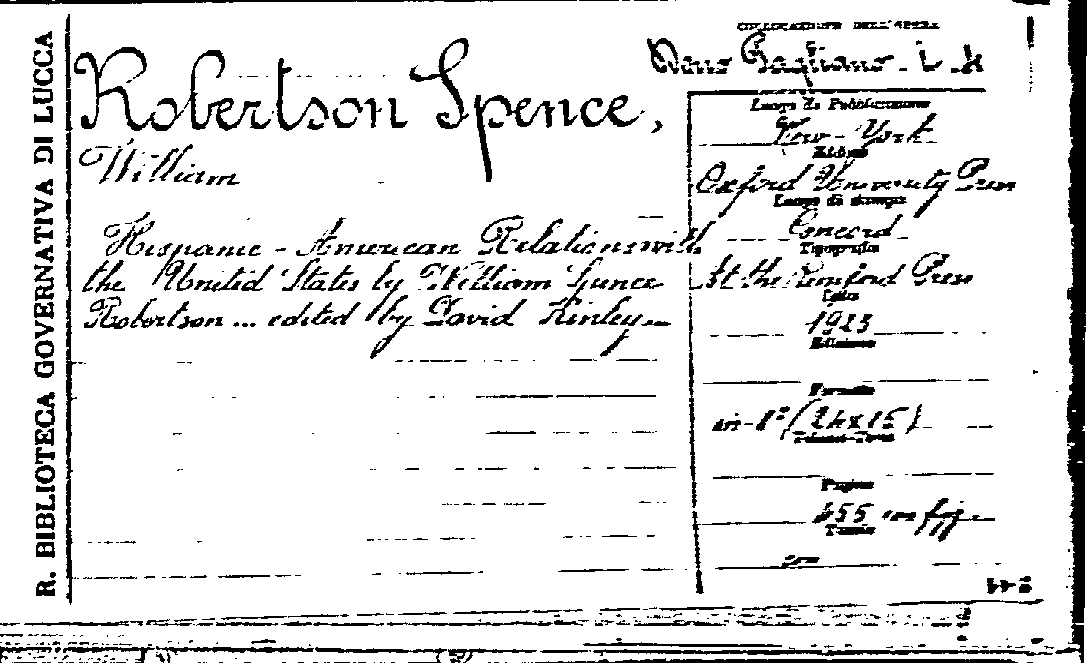 R. BIBLIOTECA GOVERNATIVA DI LUCCA
COLLOCAZIONE DELL'OPERA
Dono Gagliano - L.
Robertson Spence,
William
Hispanic - American Relations with
the United States by William Spence
Robertson ... edited by David Kinley
Luogo di Pubblicazione
New-York
Editore
Oxford University Press
Luogo di stampa
Concord
Tipografia
At the Rumford Press
Data
1923
Edizione
Formato
in-8° (24x15)
Pagine
455 con fig.